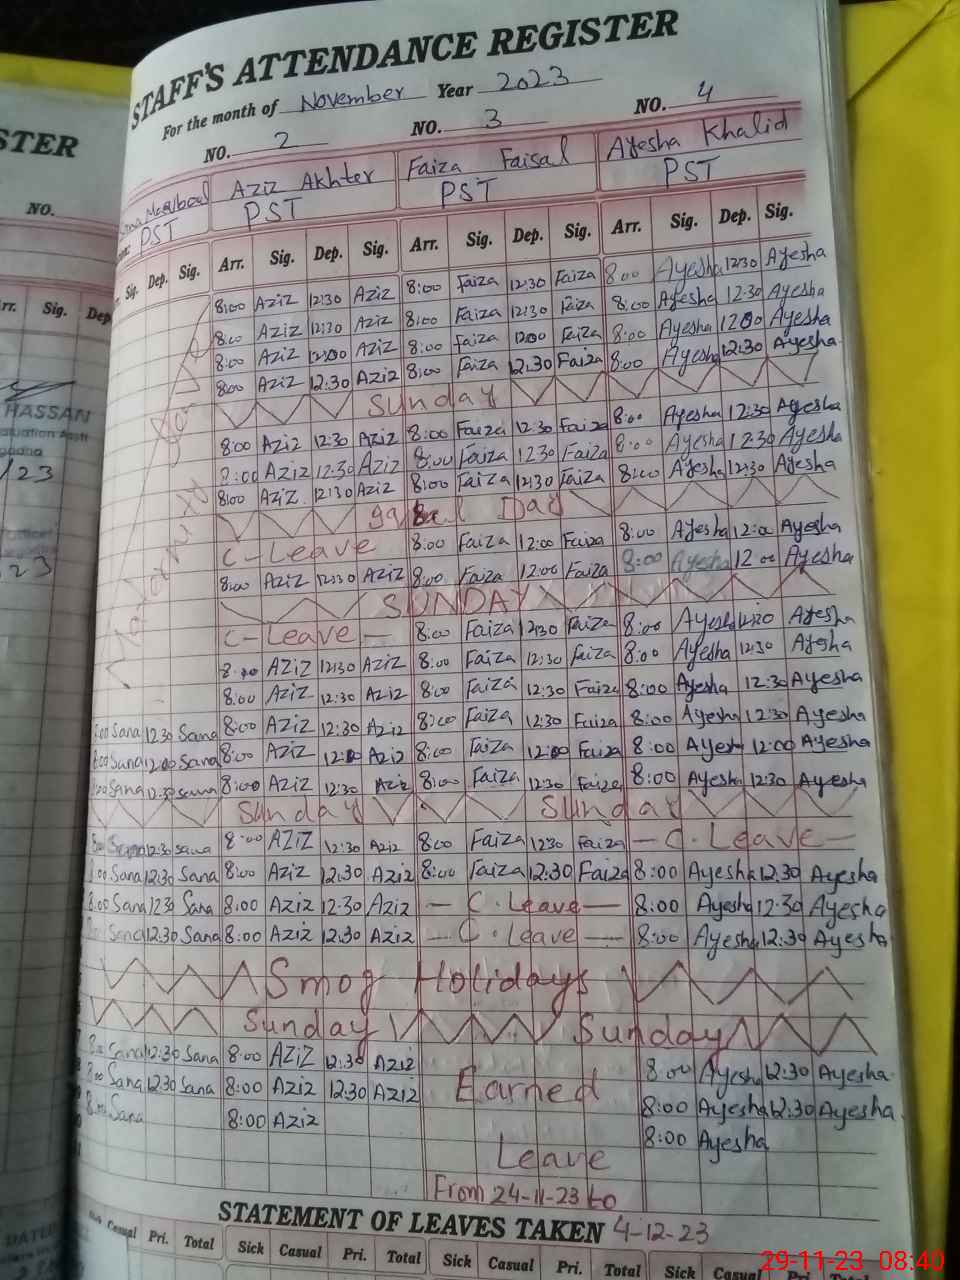 STAFF'S ATTENDANCE REGISTER
For the month of November Year 2023
STER
NO.
NO. 2 NO. 3 NO. 4
Aziz Akhter Faiza Faisal Ayesha Khalid
PST PST PST PST
Sig. Dep. Sig. Arr. Sig. Dep. Sig. Arr. Sig. Dep. Sig. Arr. Sig. Dep. Sig.
rr. Sig. Dep
8:00 Aziz 12:30 Aziz 8:00 Faiza 12:30 Faiza 8:00 Ayesha 12:30 Ayesha
8:00 Aziz 12:30 Aziz 8:00 Faiza 12:30 Faiza 8:00 Ayesha 12:30 Ayesha
8:00 Aziz Aziz 8:00 Faiza 12:00 Faiza 8:00 Ayesha 12:00 Ayesha
8:00 Aziz 12:30 Aziz 8:00 Faiza 12:30 Faiza 8:00 Ayesha 12:30 Ayesha
HASSAN
Sunday
8:00 Aziz 12:30 Aziz 8:00 Faiza 12:30 Faiza 8:00 Ayesha 12:30 Ayesha
8:00 Aziz 12:30 Aziz 8:00 Faiza 12:30 Faiza 8:00 Ayesha 12:30 Ayesha
8:00 Aziz 12:30 Aziz 8:00 Faiza 12:30 Faiza 8:00 Ayesha 12:30 Ayesha
Day
C-Leave 8:00 Faiza 12:00 Faiza 8:00 Ayesha 12:00 Ayesha
8:00 Aziz 12:30 Aziz 8:00 Faiza 12:00 Faiza 8:00 Ayesha 12:00 Ayesha
SUNDAY
C-Leave- 8:00 Faiza 12:30 Faiza 8:00 Ayesha 12:30 Ayesha
8:00 Aziz 12:30 Aziz 8:00 Faiza 12:30 Faiza 8:00 Ayesha 12:30 Ayesha
8:00 Aziz 12:30 Aziz 8:00 Faiza 12:30 Faiza 8:00 Ayesha 12:30 Ayesha
8:00 Sana 12:30 Sana 8:00 Aziz 12:30 Aziz 8:00 Faiza 12:30 Faiza 8:00 Ayesha 12:30 Ayesha
8:00 Sana 12:00 Sana 8:00 Aziz 12:00 Aziz 8:00 Faiza 12:00 Faiza 8:00 Ayesh 12:00 Ayesha
Sana 12:30 Sana 8:00 Aziz 12:30 Aziz 8:00 Faiza 12:30 Faiza 8:00 Ayesha 12:30 Ayesha
Sunday Sunday
8:00 12:30 Sana 8:00 Aziz 12:30 Aziz 8:00 Faiza 12:30 Faiza - C.Leave -
8:00 Sana 12:30 Sana 8:00 Aziz 12:30 Aziz 8:00 Faiza 12:30 Faiza 8:00 Ayesha 12:30 Ayesha
8:00 Sana 12:30 Sana 8:00 Aziz 12:30 Aziz - C.Leave - 8:00 Ayesha 12:30 Ayesha
8:00 Sana 12:30 Sana 8:00 Aziz 12:30 Aziz - C.Leave - 8:00 Ayesha 12:30 Ayesha
Smog Holidays
Sunday Sunday
8:00 Sana 12:30 Sana 8:00 Aziz 12:30 Aziz 8:00 Ayesha 12:30 Ayesha
8:00 Sana 12:30 Sana 8:00 Aziz 12:30 Aziz Earned 8:00 Ayesha 12:30 Ayesha
8:00 Sana 8:00 Aziz 8:00 Ayesha
Leave
From 24-11-23 to
STATEMENT OF LEAVES TAKEN 4-12-23
Sick Casual Pri. Total Sick Casual Pri. Total Sick Casual Pri. Total Sick Casual Pri. Total
29-11-23 08:40